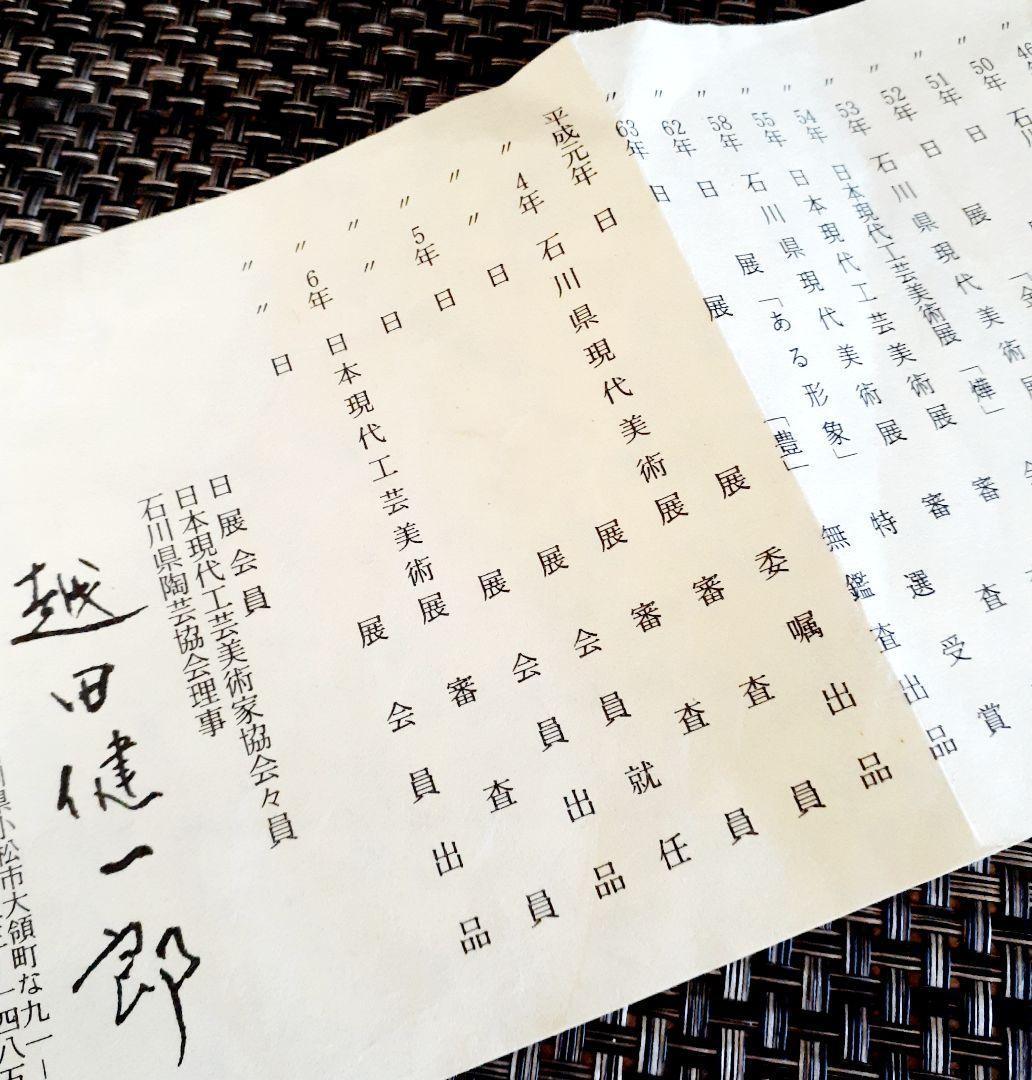 46年
〃 50年 石川
〃 51年 日
〃 52年 日 展 「金
〃 53年 石川県現代美術
〃 54年 日本現代工芸美術展 「燁」
〃 55年 日本現代工芸美術展 審
〃 58年 石川県現代美術展 審査
〃 62年 日 展 「ある形象」 特選受賞
〃 63年 日 展 「豊」 無鑑査出品
平成元年 日 展 委嘱出品
〃 4年 石川県現代美術展 審査員
〃 〃 日 展 審査員
〃 5年 日 展 会員就任
〃 〃 日 展 会員出品
〃 6年 日本現代工芸美術展 審査員
〃 〃 日 展 会員出品
日展会員
日本現代工芸美術家協会々員
石川県陶芸協会理事
越田健一郎
川県小松市大領町な九一―
一四八五